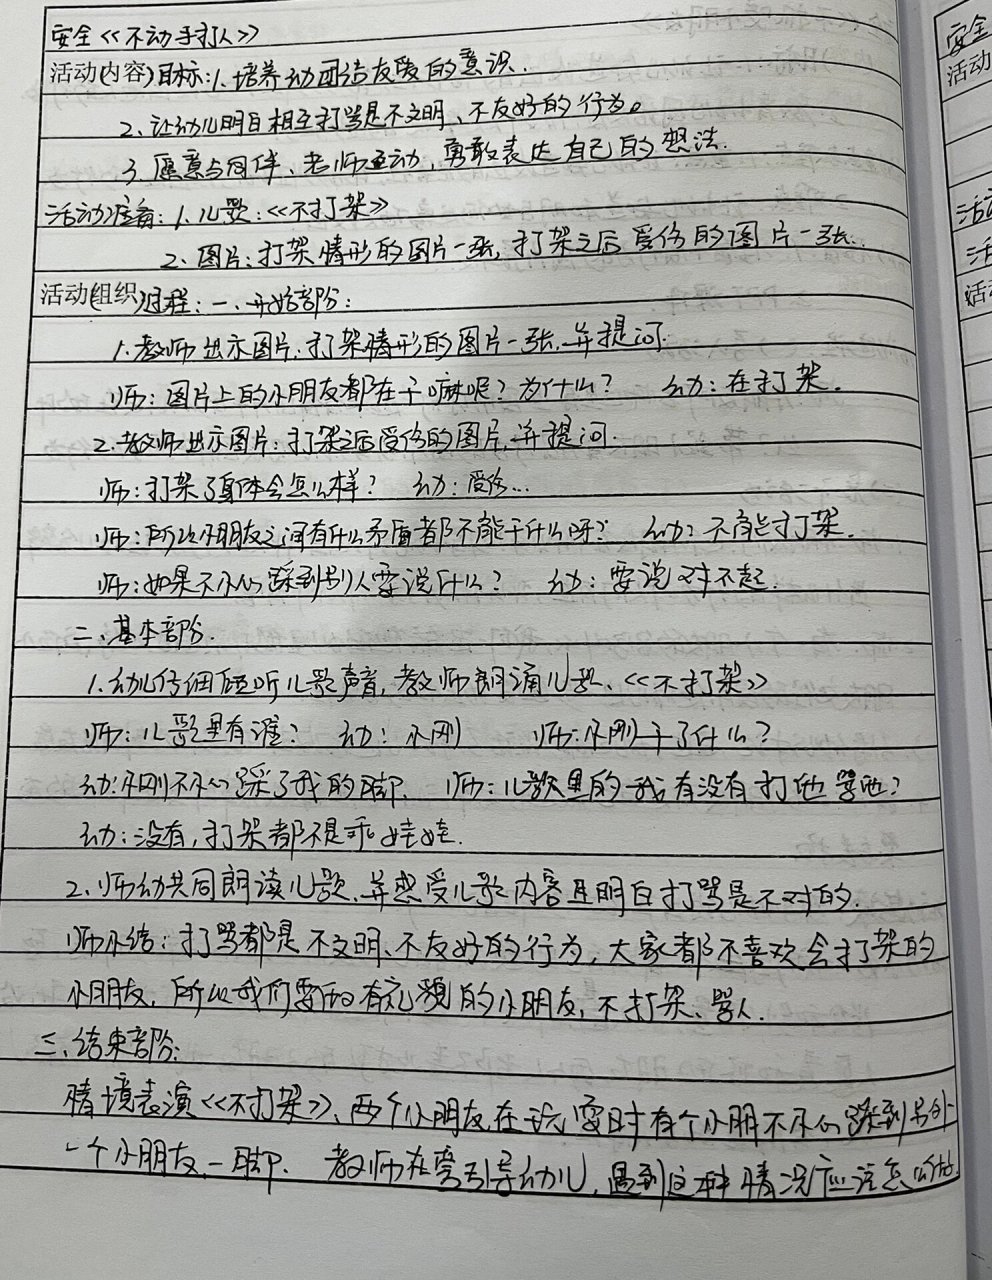 安全《不动手打人》
活动(内容)目标:1.培养幼团结友爱的意识.
2.让幼儿明白相互打骂是不文明、不友好的行为。
3.愿意与同伴、老师互动,勇敢表达自己的想法.
活动准备:1.儿歌:《不打架》
2.图片:打架情形的图片一张,打架之后受伤的图片一张.
活动(组织)过程:一.开始部份:
1.教师出示图片:打架情形的图片一张,并提问.
师:图片上的小朋友都在干嘛呢?为什么? 幼:在打架.
2.教师出示图片:打架之后受伤的图片,并提问.
师:打架了身体会怎么样? 幼:受伤...
师:所以小朋友之间有什么矛盾都不能干什么呀? 幼:不能打架.
师:如果不小心踩到别人要说什么? 幼:要说对不起.
二、基本部份.
1.幼儿仔细倾听儿歌声音,教师朗诵儿歌、《不打架》
师:儿歌里有谁? 幼:小刚 师:小刚干了什么?
幼:小刚不小心踩了我的脚. 师:儿歌里的我有没有打他骂他?
幼:没有,打架都不是乖娃娃.
2.师幼共同朗读儿歌,并感受儿歌内容且明白打骂是不对的.
师小结:打骂都是不文明、不友好的行为,大家都不喜欢会打架的
小朋友,所以我们要有礼貌的小朋友,不打架、骂人.
三、结束部份:
情境表演《不打架》、两个小朋友在玩耍时有个小朋不小心踩到另外
一个小朋友一脚. 教师在旁引导幼儿,遇到这种情况应该怎么做.